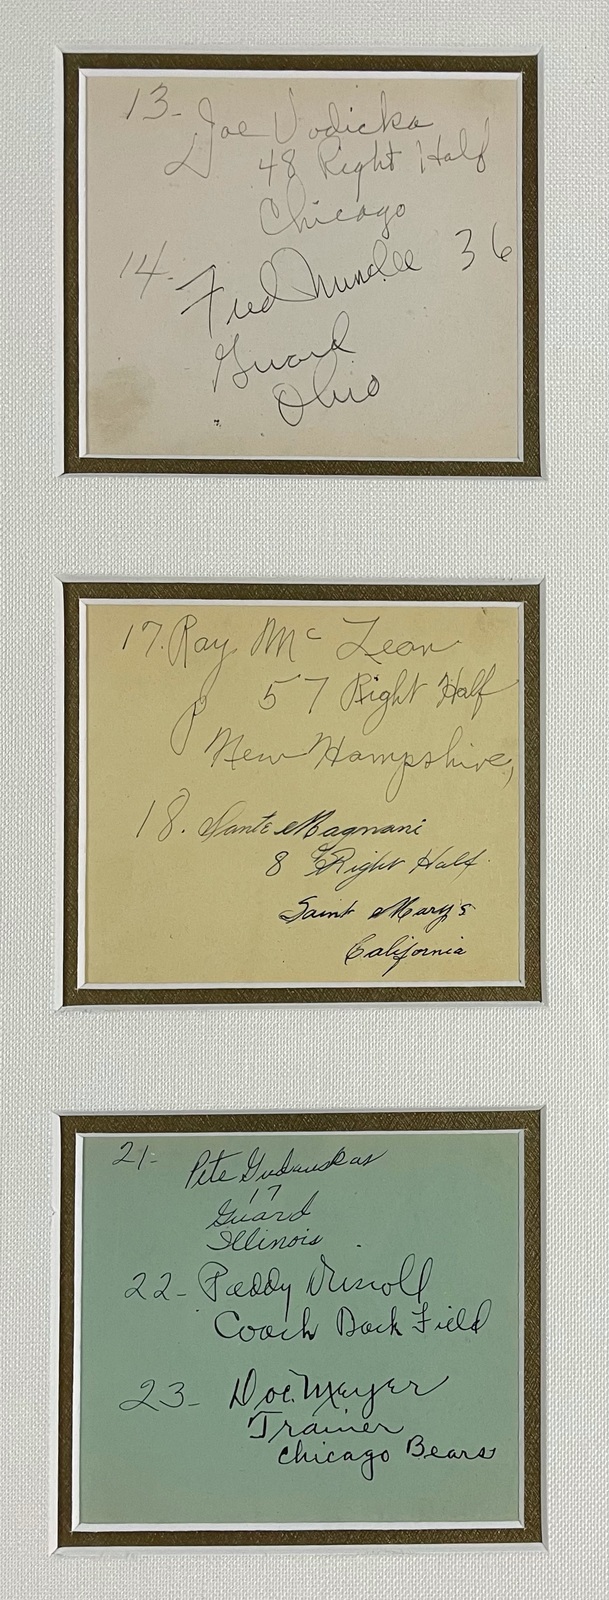 13- Joe Vodicka
48 Right Half
Chicago
14. Fred Mundee 36
Guard
Ohio
17. Ray Mc Lean
57 Right Half
New Hampshire,
18. Dante Magnani
8 Right Half
Saint Mary's
California
21- Pete Gudauskas
17
Guard
Illinois
22- Paddy Driscoll
Coach Back Field
23- Doc. Meyer
Trainer
Chicago Bears